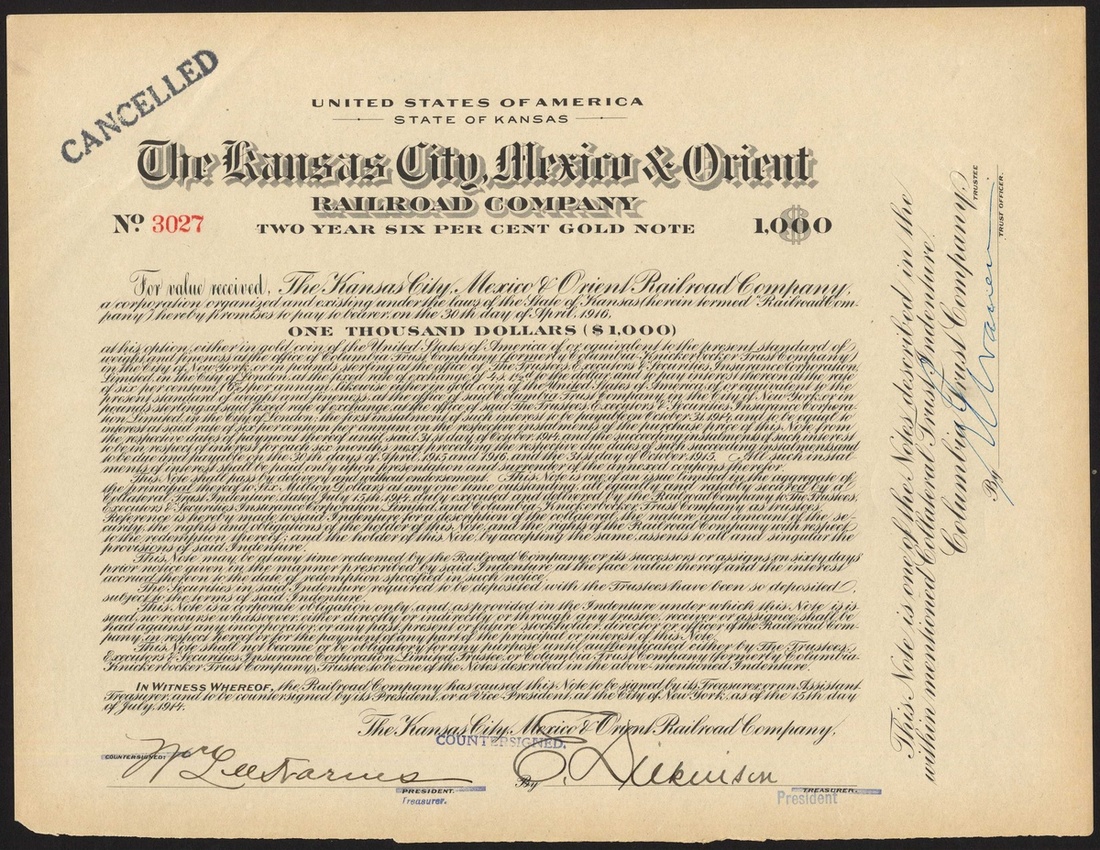 CANCELLED
UNITED STATES OF AMERICA
STATE OF KANSAS
The Kansas City, Mexico & Orient
RAILROAD COMPANY
No. 3027
TWO YEAR SIX PER CENT GOLD NOTE
$1,000
For value received, The Kansas City, Mexico & Orient Railroad Company,
a corporation organized and existing under the laws of the State of Kansas (herein termed "Railroad Com-
pany") hereby promises to pay to bearer, on the 30th day of April, 1916,
ONE THOUSAND DOLLARS ($1,000)
at his option, either in gold coin of the United States of America of or equivalent to the present standard of
weight and fineness at the office of Columbia Trust Company (formerly Columbia-Knickerbocker Trust Company)
in the City of New York, or in pounds sterling at the office of The Trustees, Executors & Securities Insurance Corporation
Limited, in the City of London, at the fixed rate of exchange of 4s. 1½d to the dollar, and to pay interest hereon at the rate of
six per centum (6%) per annum, likewise either in gold coin of the United States of America, of or equivalent to the
present standard of weight and fineness, at the office of said Columbia Trust Company, in the City of New York, or in
pounds sterling at said fixed rate of exchange, at the office of said The Trustees, Executors & Securities Insurance Corpora-
tion, Limited, in the City of London, the first instalment of such interest to be payable on October 31, 1914, and to be equal to
interest at said rate of six per centum per annum on the respective instalments of the purchase price of this Note from
the respective dates of payment thereof until said 31st day of October, 1914, and the succeeding instalments of such interest
to be in respect of interest for the six months next preceding the respective due dates of such succeeding instalments and
to be due and payable on the 30th days of April, 1915 and 1916, and the 31st day of October, 1915. All such instal-
ments of interest shall be paid only upon presentation and surrender of the annexed coupons therefor.
This Note shall pass by delivery and without endorsement. This Note is one of an issue limited in the aggregate of
the principal thereof to Six Million Dollars at any one time outstanding, all equally and ratably secured by a
Collateral Trust Indenture, dated July 15th, 1914, duly executed and delivered by the Railroad Company to The Trustees,
Executors & Securities Insurance Corporation, Limited, and Columbia-Knickerbocker Trust Company as trustees.
Reference is hereby made to said Indenture for a description of the collateral; the nature and amount of the se-
curity, the obligations of the holder of this Note, and the rights of the Railroad Company with respect
to the redemption thereof; and the holder of this Note, by accepting the same, assents to all and singular the
provisions of said Indenture.
This Note may be at any time redeemed by the Railroad Company, or its successors or assigns, on sixty days
prior notice given in the manner prescribed by said Indenture at the face value thereof and the interest
accrued thereon to the date of redemption specified in such notice.
The Securities in said Indenture required to be deposited with the Trustees have been so deposited,
subject to the terms of said Indenture.
This Note is a corporate obligation only, and, as provided in the Indenture under which this Note is is-
sued, no recourse whatsoever, either directly or indirectly or through any trustee, receiver or assignee, shall be
had against any incorporator, or any past, present or future stockholder, director or officer of the Railroad Com-
pany, in respect hereof or for the payment of any part of the principal or interest of this Note.
This Note shall not become or be obligatory for any purpose until authenticated either by The Trustees,
Executors & Securities Insurance Corporation, Limited, Trustee, or Columbia Trust Company (formerly Columbia-
Knickerbocker Trust Company), Trustee, to be one of the Notes described in the above-mentioned Indenture.
IN WITNESS WHEREOF, the Railroad Company has caused this Note to be signed by its Treasurer or an Assistant
Treasurer, and to be countersigned by its President, or a Vice-President, at the City of New York, as of the 15th day
of July, 1914.
The Kansas City, Mexico & Orient Railroad Company,
COUNTERSIGNED:
COUNTERSIGNED:
By E. Dilkinson
PRESIDENT.
Treasurer.
TREASURER.
President
This Note is one of the Notes described in the
within mentioned Collateral Trust Indenture.
Columbia Trust Company,
TRUSTEE
By
TRUST OFFICER.